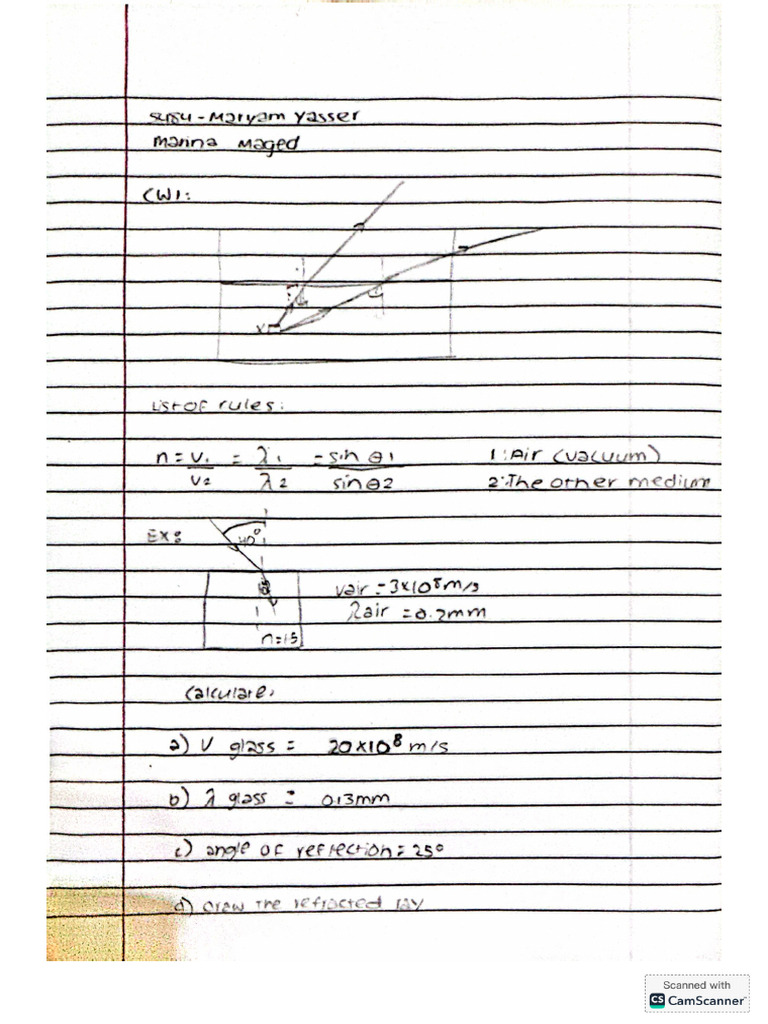 susu - Maryam Yasser
Marina Maged
CW1:
List of rules:
n = V1 = λ1 = sin θ1 1: Air (vacuum)
V2 λ2 sin θ2 2: The other medium
Ex: 40°
vair = 3x10⁸ m/s
λair = 0.2mm
n=1.5
Calculate:
a) V glass = 20x10⁸ m/s
b) λ glass = 0.13mm
c) angle of reflection = 25°
d) draw the refracted ray
Scanned with
CS CamScanner